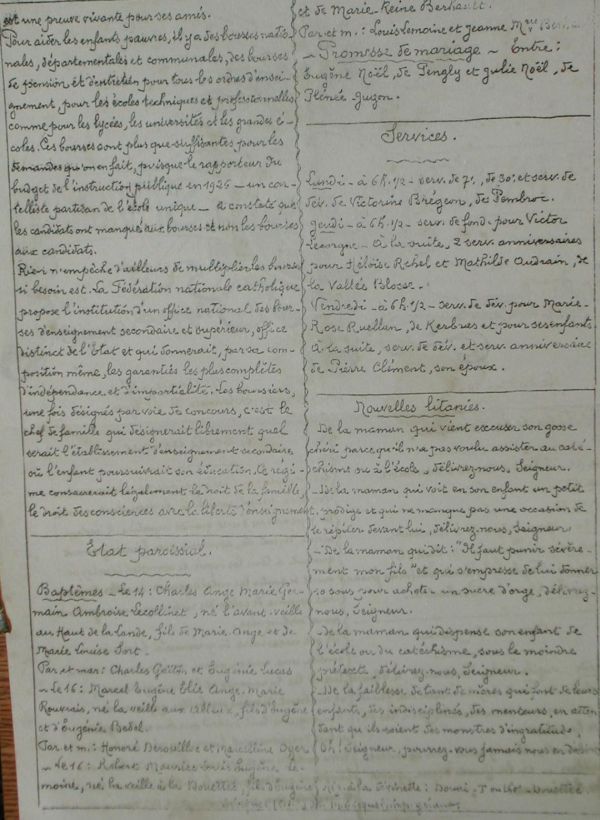 est une preuve vivante pour ses amis.
Pour aider les enfants pauvres, il y a des bourses natio-
nales, départementales et communales, des bourses
de pension et d'entretien pour tous les ordres d'ensei-
gnement, pour les écoles techniques et professionnelles
comme pour les lycées, les universités et les grandes é-
coles. Ces bourses sont plus que suffisantes pour les
demandes qu'on en fait, puisque le rapporteur du
budget de l'instruction publique en 1926 — un car-
telliste partisan de l'école unique — a constaté que
les candidats ont manqué aux bourses et non les bourses
aux candidats.
Rien n'empêche d'ailleurs de multiplier les bourses
si besoin est. La Fédération nationale catholique
propose l'institution d'un office national des bour-
ses d'enseignement secondaire et supérieur, office
distinct de l'Etat et qui donnerait, par sa com-
position même, les garanties les plus complètes
d'indépendance et d'impartialité. Les boursiers,
une fois désignés par voie de concours, c'est le
chef de famille qui désignerait librement quel
serait l'établissement d'enseignement secondaire
où l'enfant poursuivrait son éducation. Ce régi-
me consacrerait légalement le droit de la famille,
le droit des consciences avec la liberté d'enseignement.
Etat paroissial.
Baptêmes — Le 14 : Charles Ange Marie Ger-
main Ambroise Lecollinet, né l'avant-veille
au Haut de la Lande, fils de Marie Ange et de
Marie Louise Port.
Par et mar : Charles et Eugénie Lucas
— Le 16 : Marcel Eugène Elie Ange Marie
Rouvrais, né la veille aux fils d'Eugène
et d'Eugénie Bedel.
Par et m. : Honoré et Marcelline
— Le 16 : Robert Maurice Louis Eugène Le-
moine, né la veille à la Douettée, fils d'Eugène
et de Marie Reine Berhault.
Par et m : Louis Lemoine et Jeanne Mie
— Promesse de mariage — Entre :
Eugène Noël, de Pengly et Julie Noël, de
Plénée-Jugon.
Services.
Lundi — à 6h.1/2 — serv. de 7e, de 30e et serv. de
dév. de Victorine Brégeon, de Pembroc.
Jeudi — à 6h.1/2 — serv. de fond. pour Victor
Lavergne — à la suite, 2 serv. anniversaires
pour Héloïse Rehel et Mathilde Audrain, de
la Vallée
Vendredi — à 6h.1/2 — serv. de dév. pour Marie-
Rose Ruellan, de et pour ses enfants
à la suite, serv. de dév. et serv. anniversaire
de Pierre Clément, son époux.
Nouvelles litanies.
De la maman qui vient excuser son gosse
chéri parce qu'il n'a pas voulu assister au caté-
chisme ou à l'école, délivrez-nous, Seigneur.
— De la maman qui voit en son enfant un petit
prodige et qui ne manque pas une occasion de
le répéter devant lui, délivrez-nous, Seigneur
— De la maman qui dit : "Il faut punir sévère-
ment mon fils" et qui s'empresse de lui donner
10 sous pour acheter un sucre d'orge, délivrez-
nous, Seigneur.
— De la maman qui dispense son enfant de
l'école ou du catéchisme, sous le moindre
prétexte, délivrez-nous, Seigneur.
— De la faiblesse de tant de mères qui font de leurs
enfants, des indisciplinés, des menteurs, en atten-
dant qu'ils soient des monstres d'ingratitude,
Oh ! Seigneur, pourrez-vous jamais nous en